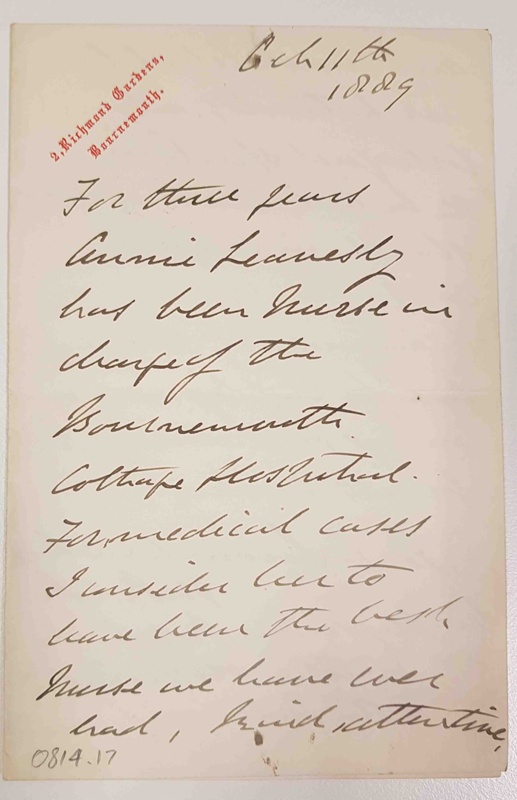 2, Richmond Gardens,
Bournemouth.
Oct 11th
1889
For three years
Annie Leavesly
has been Nurse in
charge of the
Bournemouth
Cottage Hospital.
For medical cases
I consider her to
have been the best
Nurse we have ever
had, kind, attentive,
0814.17